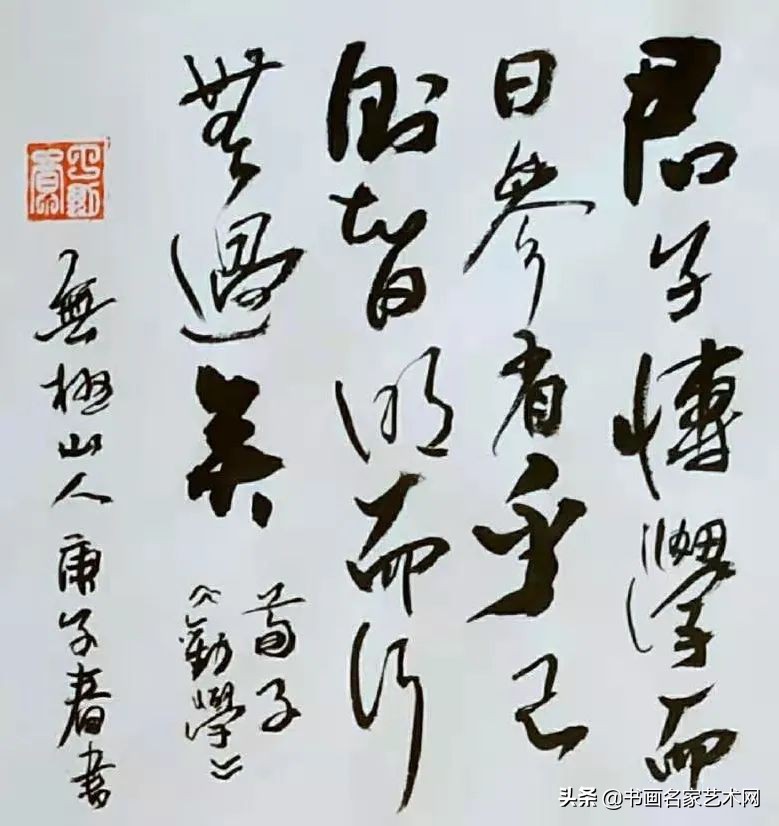 君子博學而
日參省乎己
則智明而行
無過矣
荀子
《勸學》
無極山人庚子春書
头条 @书画名家艺术网